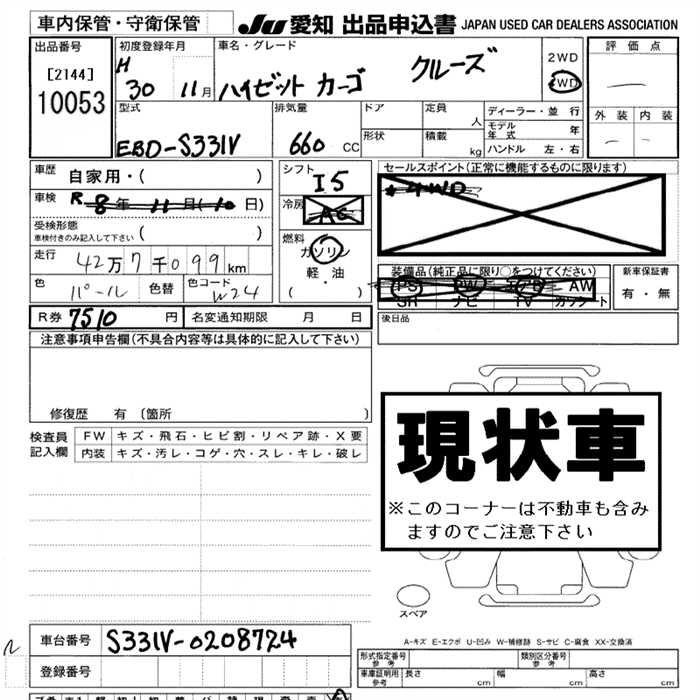 車内保管・守衛保管 JU 愛知 出品申込書 JAPAN USED CAR DEALERS ASSOCIATION
出品番号 初度登録年月 車名・グレード 2WD 評価点
[2144] H 30 11月 ハイゼット カーゴ クルーズ 4WD
10053
型式 排気量 ドア 定員 人 ディーラー・並行 外装 内装
EBD-S331V 660 CC 形状 積載 kg モデル年式 年
ハンドル 左・右
車歴 自家用・( ) シフト I5 セールスポイント(正常に機能するものに限ります)
車検 R 8年 11月(10日) 冷房 AC *4WD
受検形態
車検付きのみ記入して下さい ( ) 燃料
走行 42万7千099km ガソリン
軽・油
( )
装備品(純正品に限り○をつけてください) 新車保証書
PS PW エアB AW 有・無
SR ナビ TV カセット
色 パール 色替 色コード W24
R券 7510 円 名変通知期限 月 日 後日品
注意事項申告欄(不具合内容等は具体的に記入して下さい)
修復歴 有 〔箇所 〕
検査員 FW キズ・飛石・ヒビ割・リペア跡・X要
記入欄 内装 キズ・汚レ・コゲ・穴・スレ・キレ・破レ
現状車
※このコーナーは不動車も含み
ますのでご注意下さい
スペア
A-キズ E-エクボ U-凹み W-補修跡 S-サビ C-腐食 XX-交換済
車台番号 S331V-0208724
登録番号
形式指定番号 参考 類別区分番号 参考
車庫証明用 参考 長さ cm 幅 cm 高さ cm